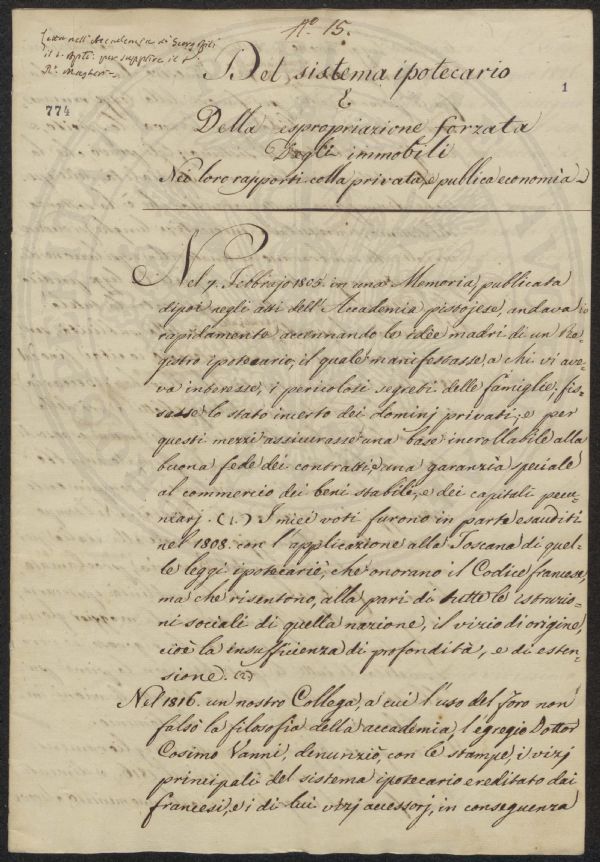 N.º 15.
Letta nell'Accademia di Georgofili
il 2. Aple. per supplire il P.
R. Magheri
774
1
Del sistema ipotecario
E
Della espropriazione forzata
Degli immobili
Nei loro rapporti colla privata, e publica economia
Nel 7. Febbrajo 1805. in una Memoria, publicata
dipoi negli atti dell'Accademia pistojese, andava io
rapidamente accennando le idee madri di un Re=
gistro ipotecario, il quale manifestasse, a chi vi ave=
va interesse, i pericolosi segreti delle famiglie, fis=
sasse lo stato incerto dei dominj privati, e per
questi mezzi assicurasse una base incrollabile alla
buona fede dei contratti, e una garanzia speciale
al commercio dei beni stabili, e dei capitali pecu=
niarj. (1.) I miei voti furono in parte esauditi
nel 1808. con l'applicazione alla Toscana di quel=
le leggi ipotecarie, che onorano il Codice francese,
ma che risentono, alla pari di tutte le istruzio=
ni sociali di quella nazione, il vizio di origine,
cioè la insufficienza di profondità, e di esten=
sione. (2.)
Nel 1816. un nostro Collega, a cui l'uso del foro non
falsò la filosofia della accademia, l'egregio Dottor
Cosimo Vanni, denunziò, con le stampe, i vizj
principali del sistema ipotecario ereditato dai
francesi, e i di lui vizj accessorj, in conseguenza